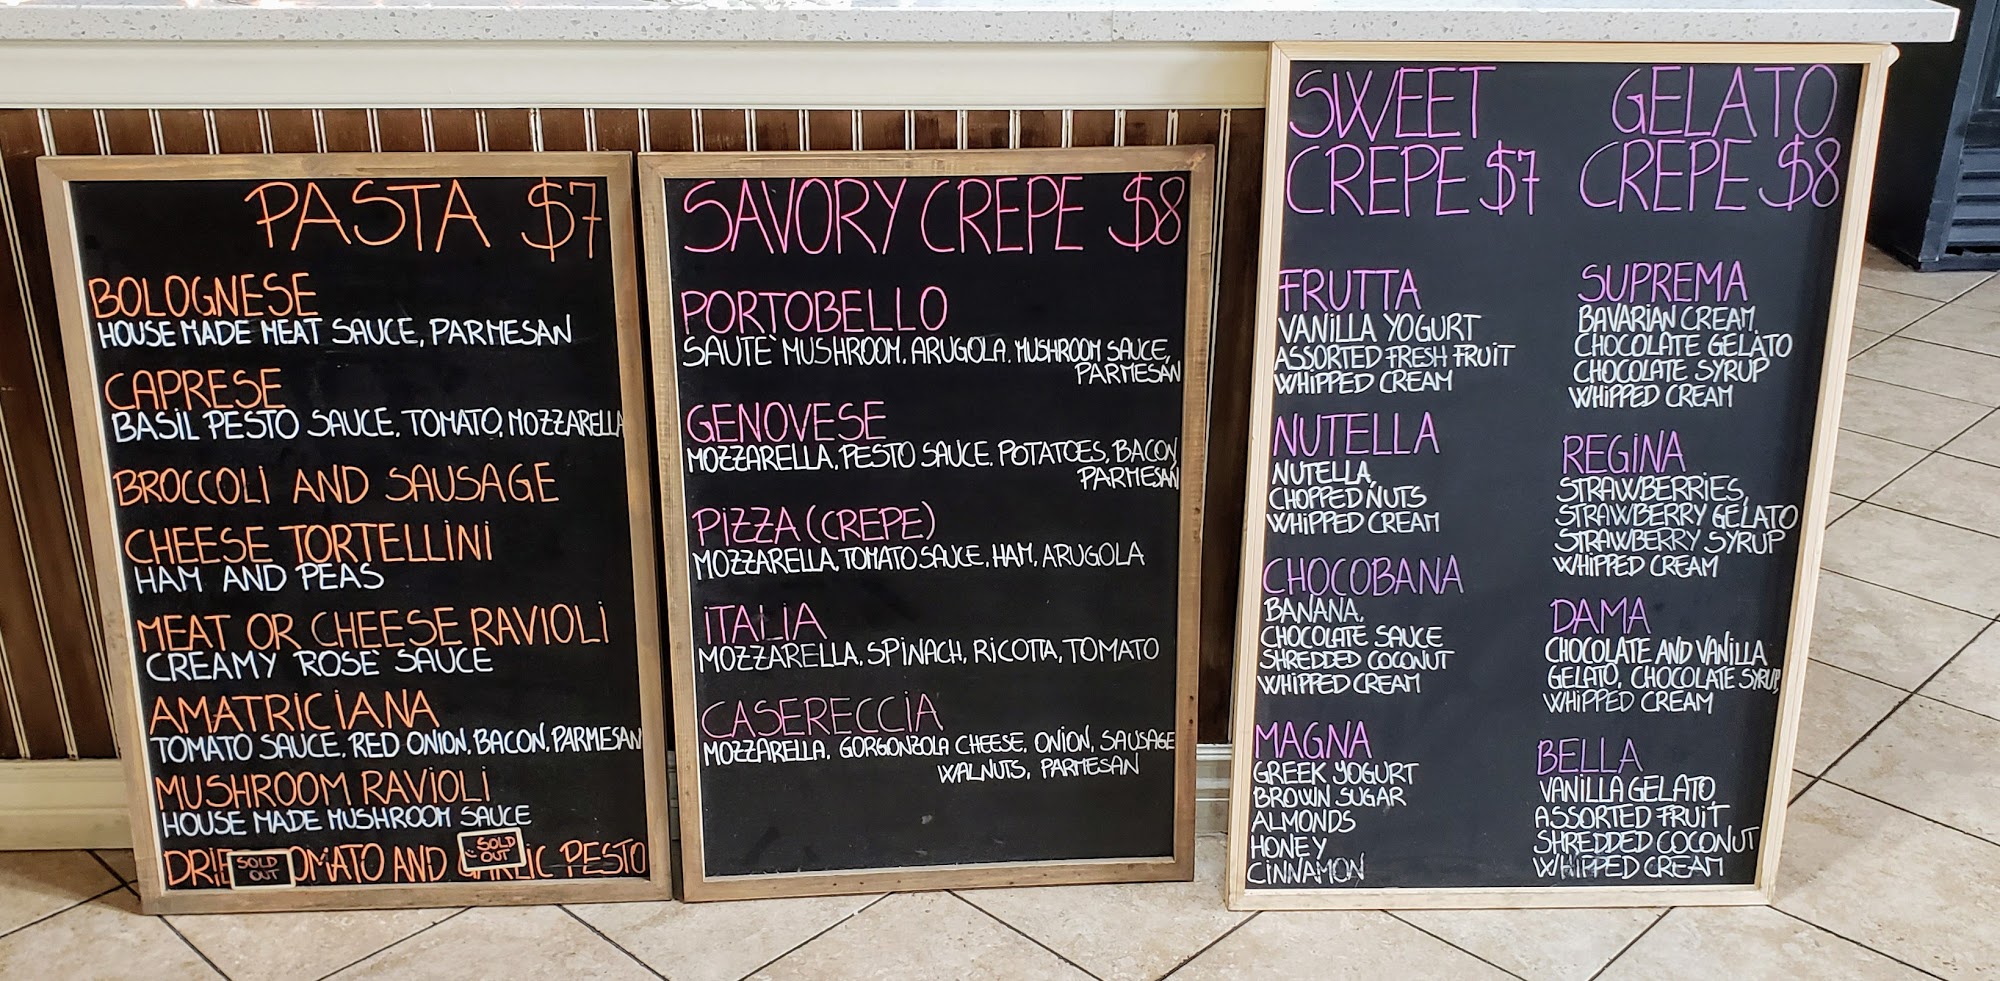 PASTA $7
BOLOGNESE
HOUSE MADE MEAT SAUCE, PARMESAN
CAPRESE
BASIL PESTO SAUCE, TOMATO, MOZZARELLA
BROCCOLI AND SAUSAGE
CHEESE TORTELLINI
HAM AND PEAS
MEAT OR CHEESE RAVIOLI
CREAMY ROSE SAUCE
AMATRICIANA
TOMATO SAUCE, RED ONION, BACON, PARMESAN
MUSHROOM RAVIOLI
HOUSE MADE MUSHROOM SAUCE
SOLD
OUT
AND PESTO
SOLD
OUT
SAVORY CREPE $8
PORTOBELLO
SAUTE` MUSHROOM, ARUGOLA, MUSHROOM SAUCE,
PARMESAN
GENOVESE
MOZZARELLA, PESTO SAUCE, POTATOES, BACON,
PARMESAN
PIZZA (CREPE)
MOZZARELLA, TOMATO SAUCE, HAM, ARUGOLA
ITALIA
MOZZARELLA, SPINACH, RICOTTA, TOMATO
CASERECCIA
MOZZARELLA, GORGONZOLA CHEESE, ONION, SAUSAGE
WALNUTS, PARMESAN
SWEET
CREPE $7
FRUTTA
VANILLA YOGURT
ASSORTED FRESH FRUIT
WHIPPED CREAM
NUTELLA
NUTELLA,
CHOPPED NUTS
WHIPPED CREAM
CHOCOBANA
BANANA,
CHOCOLATE SAUCE
SHREDDED COCONUT
WHIPPED CREAM
MAGNA
GREEK YOGURT
BROWN SUGAR
ALMONDS
HONEY
CINNAMON
GELATO
CREPE $8
SUPREMA
BAVARIAN CREAM,
CHOCOLATE GELATO
CHOCOLATE SYRUP
WHIPPED CREAM
REGINA
STRAWBERRIES,
STRAWBERRY GELATO
STRAWBERRY SYRUP
WHIPPED CREAM
DAMA
CHOCOLATE AND VANILLA
GELATO, CHOCOLATE SYRUP,
WHIPPED CREAM
BELLA
VANILLA GELATO,
ASSORTED FRUIT
SHREDDED COCONUT
WHIPPED CREAM